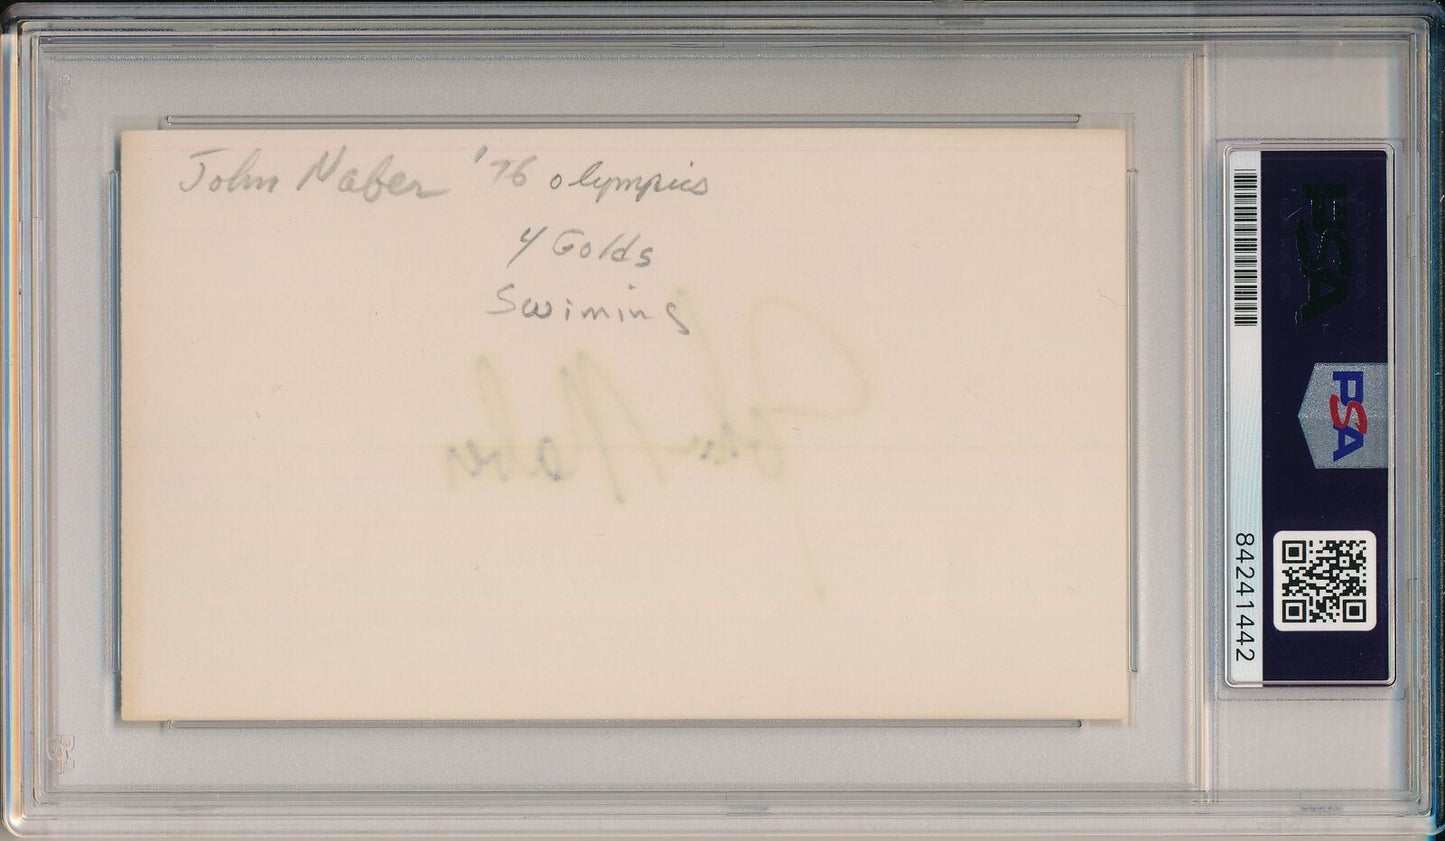 John Naber '76 olympics
4 Golds
Swiming
John Naber
PSA
PSA
84241442